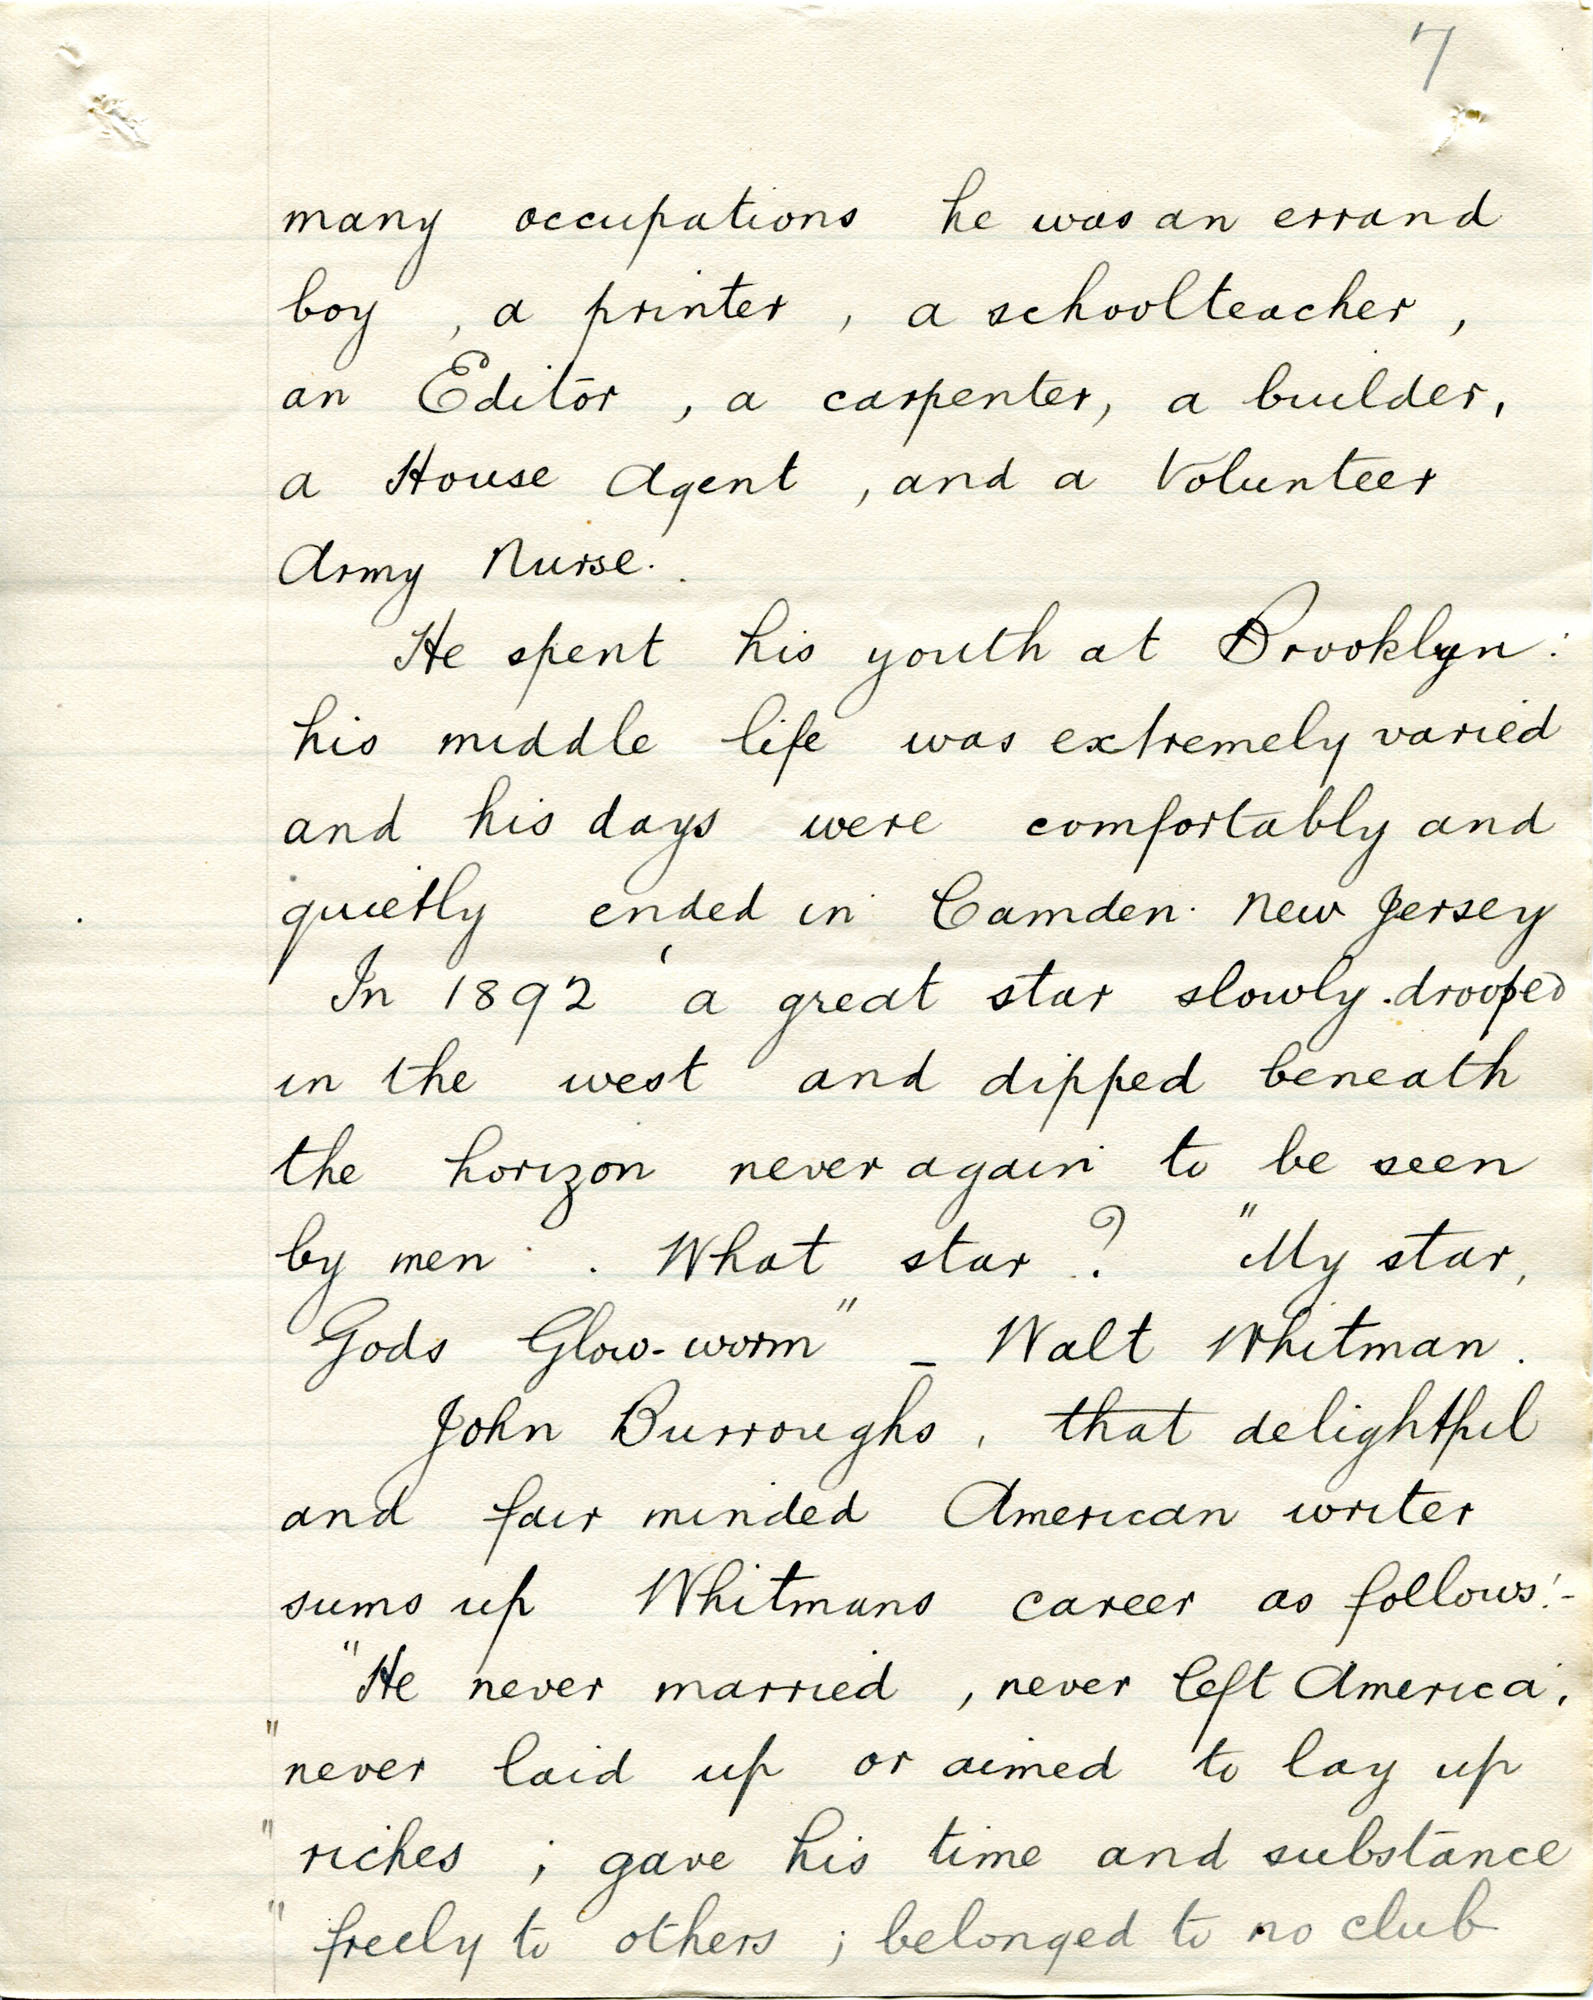 7
many occupations he was an errand
boy , a printer , a schoolteacher ,
an Editor , a carpenter, a builder,
a House Agent , and a Volunteer
Army Nurse.
He spent his youth at Brooklyn :
his middle life was extremely varied
and his days were comfortably and
quietly ended in Camden. New Jersey
In 1892 ' a great star slowly drooped
in the west and dipped beneath
the horizon never again to be seen
by men . What star ? "My star,
Gods Glow-worm" _ Walt Whitman .
John Burroughs , that delightful
and fair minded American writer
sums up Whitmans career as follows:-
"He never married , never left America,
" never laid up or aimed to lay up
" riches ; gave his time and substance
" freely to others ; belonged to no club